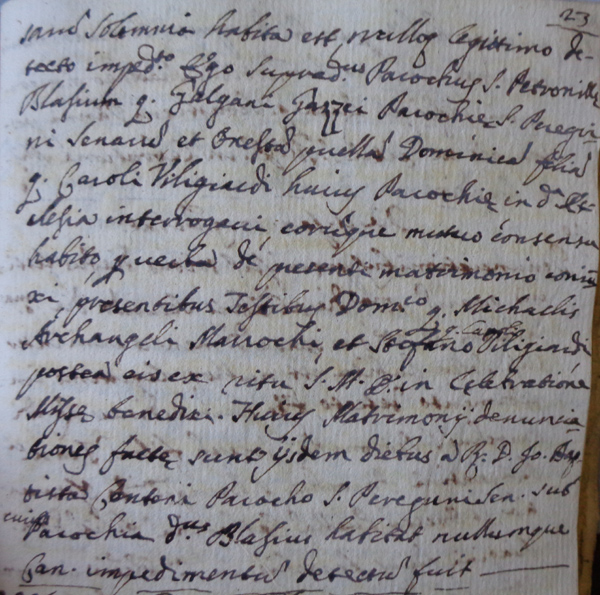 23
sarũ solemnia habita est, nulloq legitimo de-
tecto imped.to Ego suprad.us Parochus S. Petronillę
Blasium q. Galgani Gazzei Parochię S. Peregri-
ni Senarũ et honestã puellã Dominicã filiã
q. Caroli Viligiardi huius Parochię in d.a Ec-
clesia interrogavi, eorũque mutuo consensu
habito, p verba de presenti matrimonio coniũ
xi, presentibus Testibus Dom.co q. Michaelis
Archangeli Marrochi, et Stefano q. Caroli Viligiardi
postea eis ex ritu S. M. E. in Celebratione
Missę benedixi. Huius Matrimonij denuncia
tiones factę sunt ijsdem diebus a R. D. Jo. Bap
tista Parocho S. Peregrini Sen. sub
cuius Parochia d.us Blasius habitat nullumque
Can. impedimentũ detectũ fuit